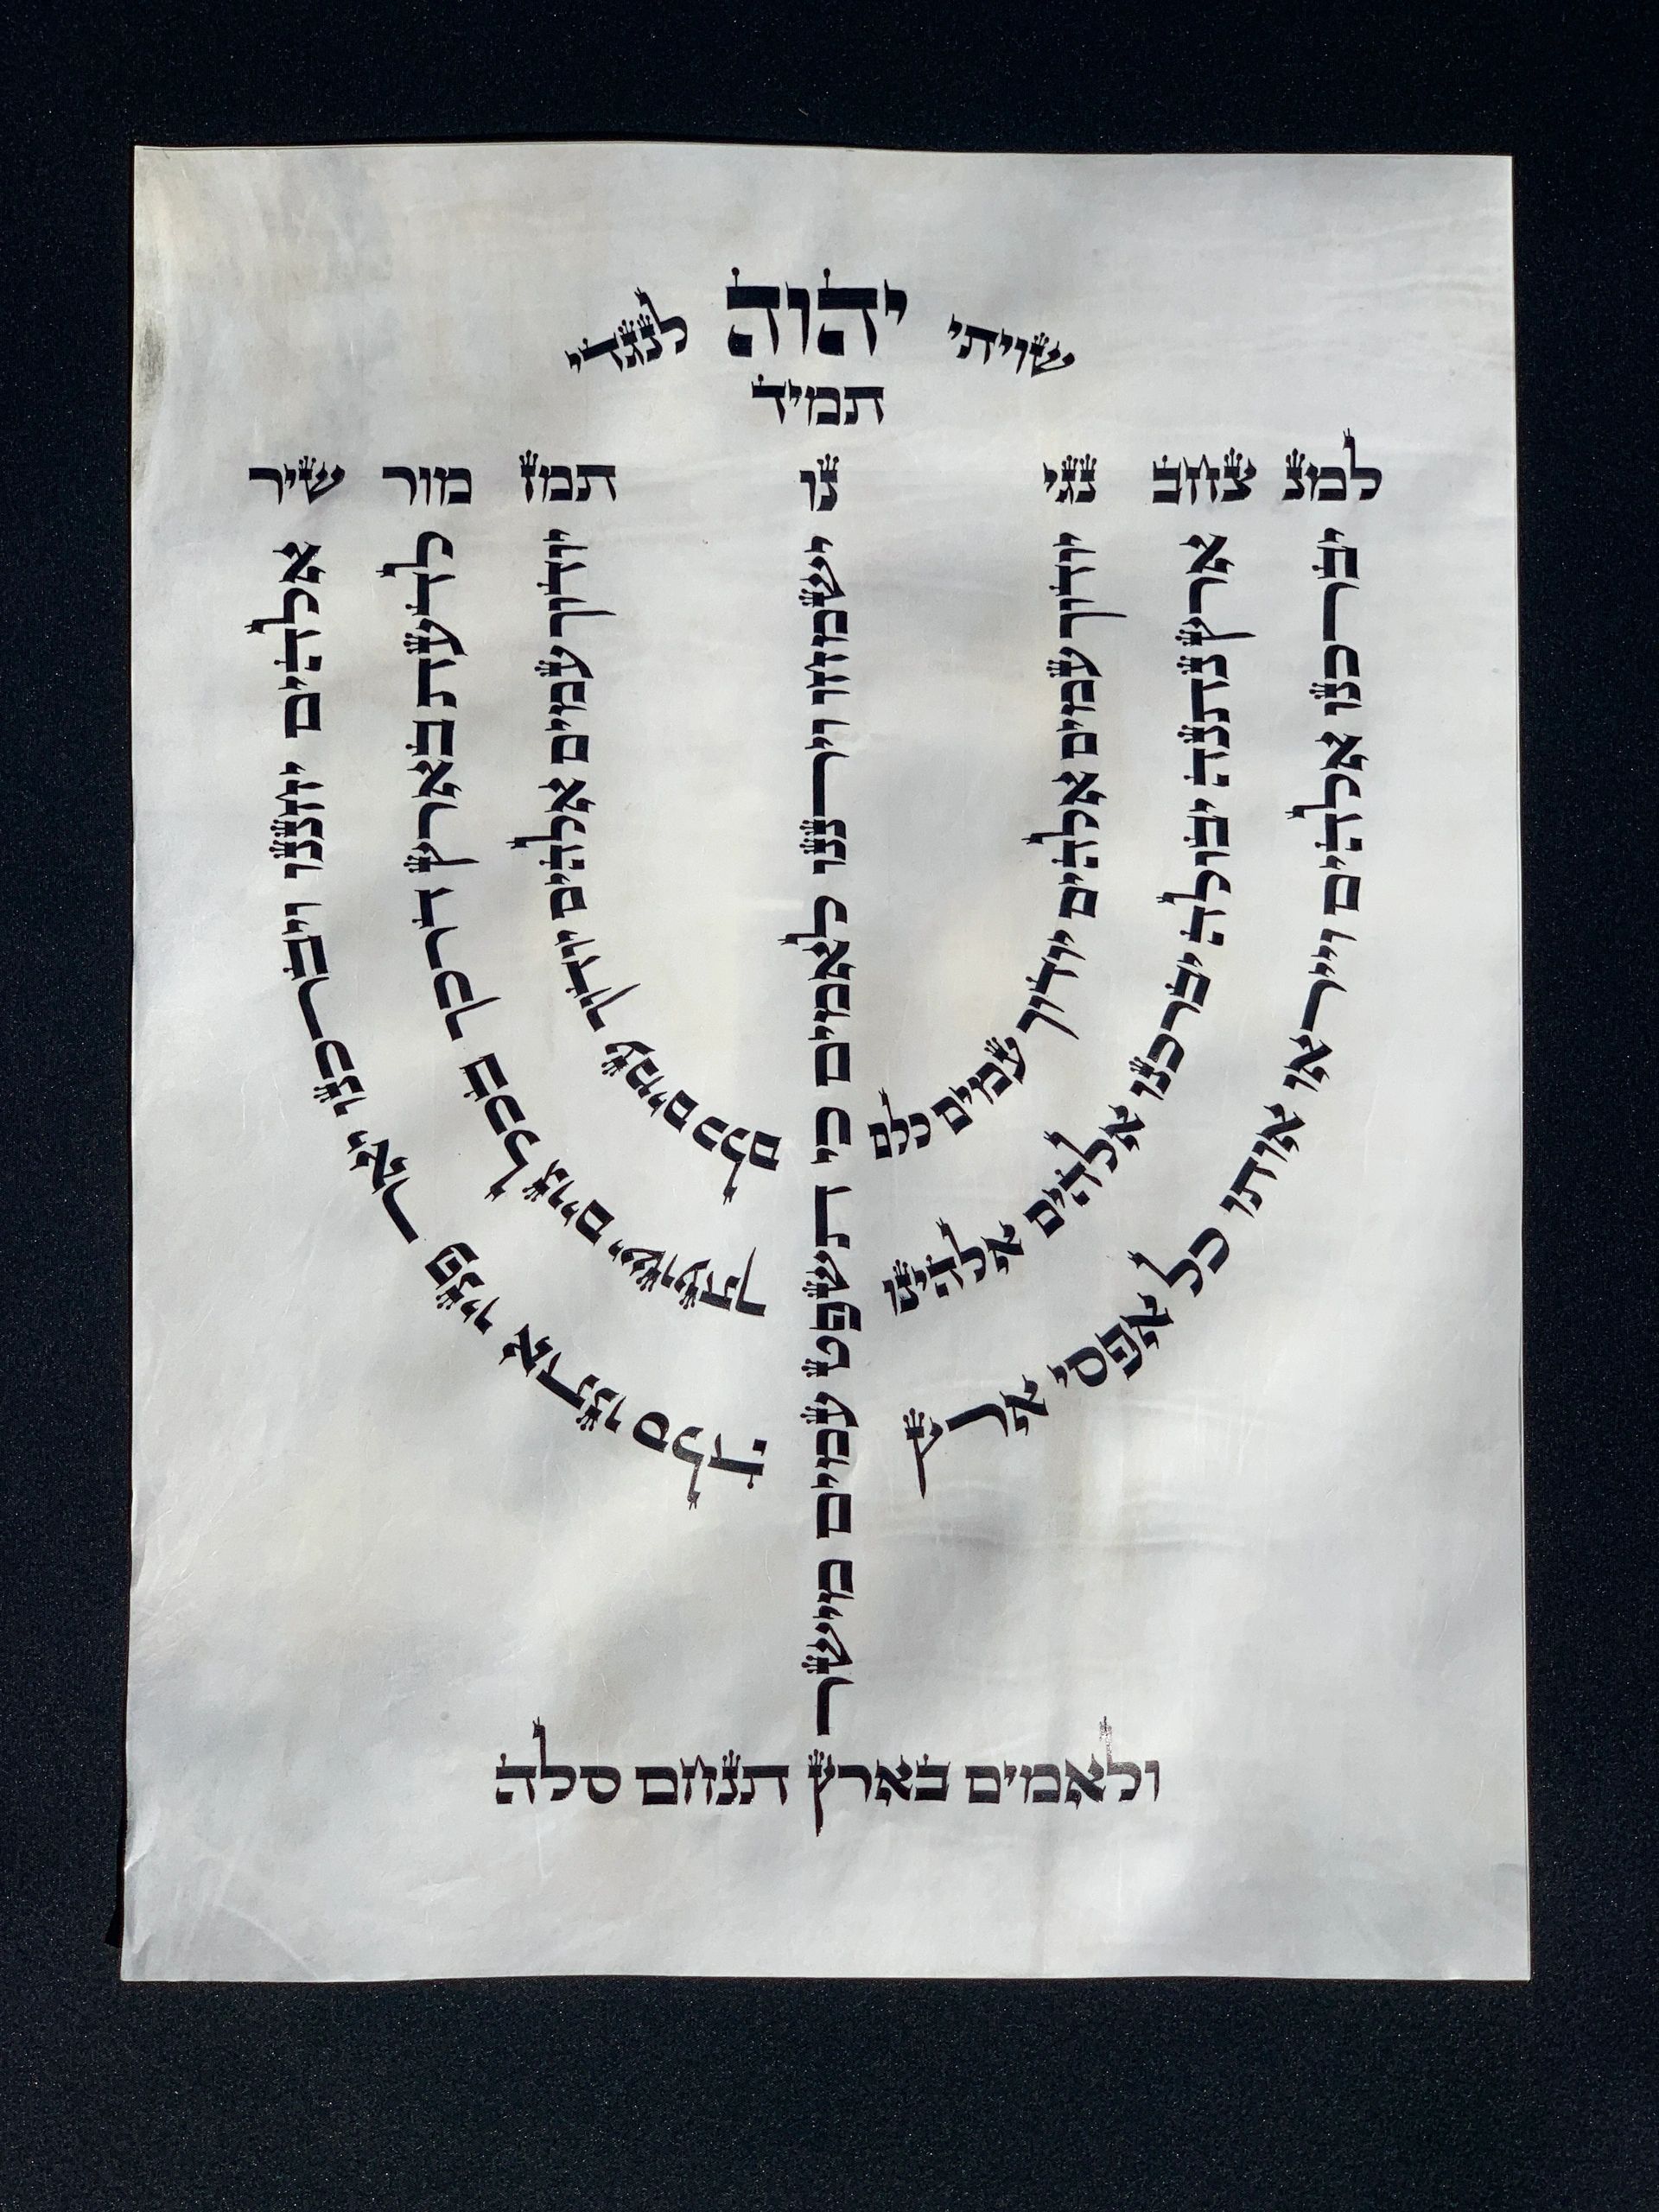 שויתי יהוה לנגדי
תמיד
למנ צחב נגי נו תמז מור שיר
יברכנו אלהים וייראו אותו כל אפסי ארץ
ארץ נתנה יבולה יברכנו אלהים אלהינו
יודוך עמים אלהים יודוך עמים כלם
ישמחו וירננו לאמים כי תשפט עמים מישר
יודוך עמים אלהים יודוך עמים כלם
לדעת בארץ דרכך בכל גוים ישועתך
אלהים יחננו ויברכנו יאר פניו אתנו סלה
ולאמים בארץ תנחם סלה